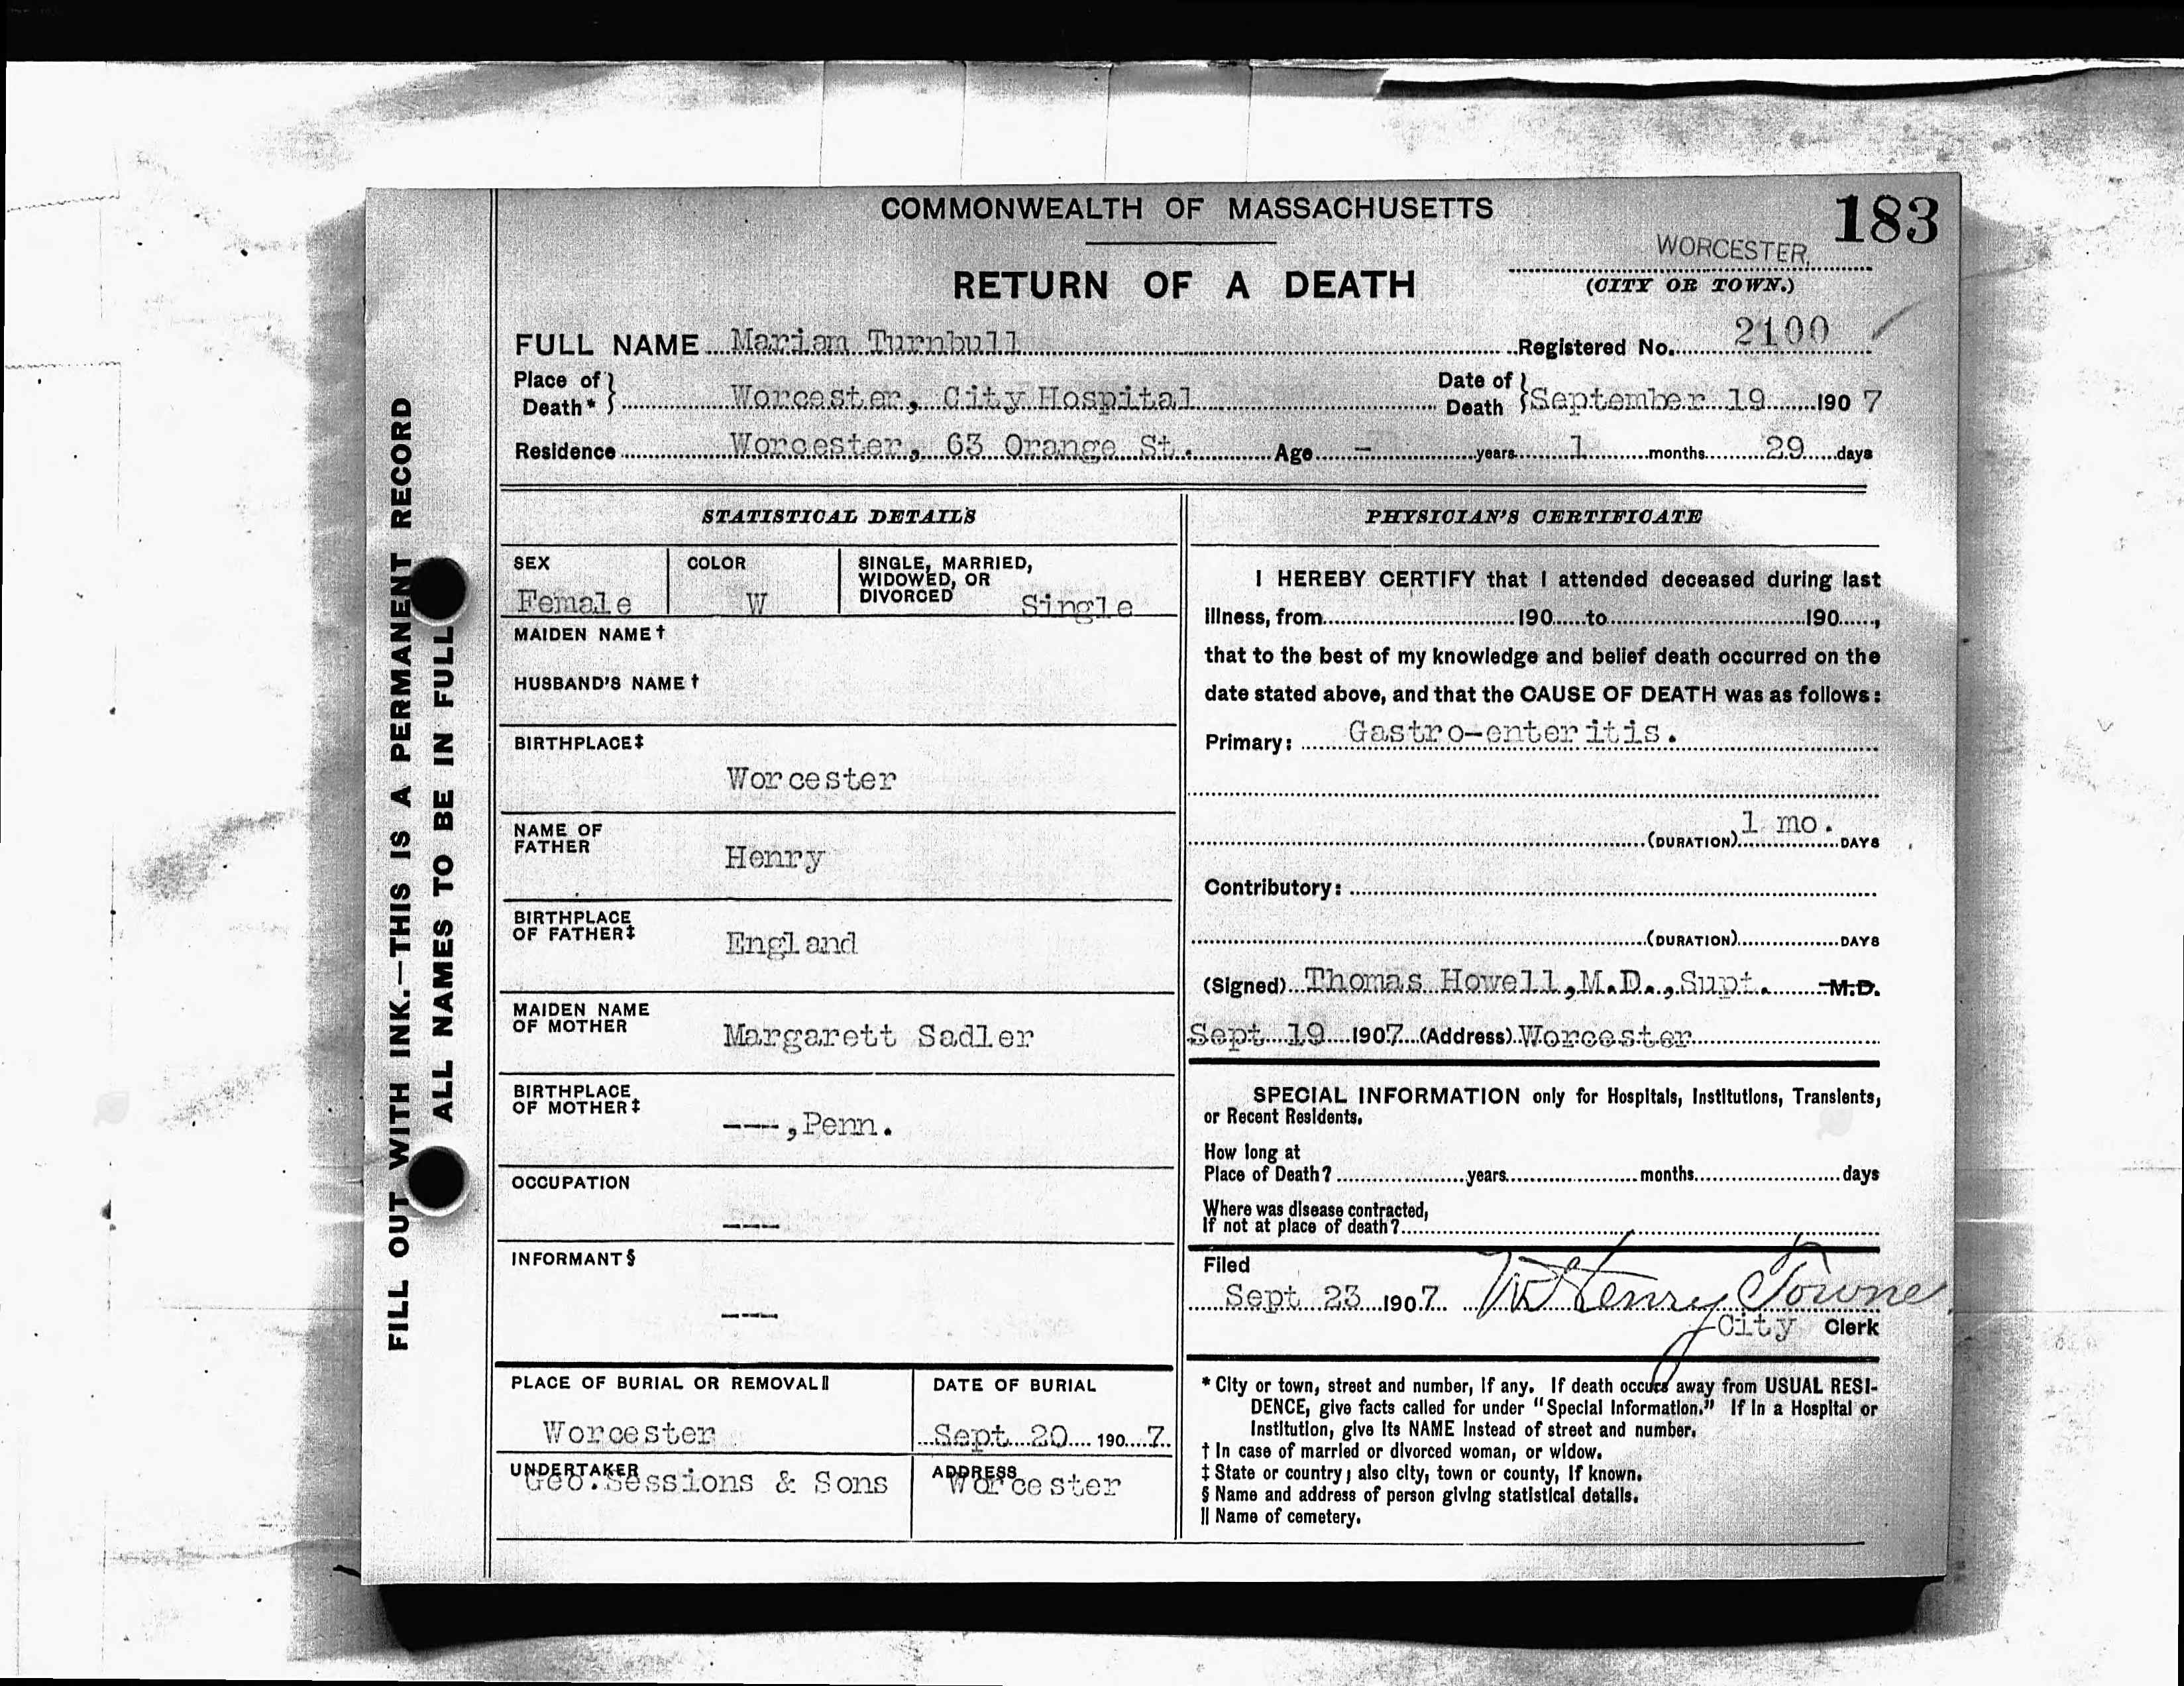 COMMONWEALTH OF MASSACHUSETTS
183
WORCESTER,
RETURN OF A DEATH
(CITY OR TOWN.)
FULL NAME Marian Turnbull Registered No. 2100
Place of Death* Worcester, City Hospital Date of Death September 19 1907
Residence Worcester, 63 Orange St. Age - years 1 months 29 days
FILL OUT WITH INK.—THIS IS A PERMANENT RECORD
ALL NAMES TO BE IN FULL
STATISTICAL DETAILS
SEX Female
COLOR W
SINGLE, MARRIED, WIDOWED, OR DIVORCED Single
MAIDEN NAME †
HUSBAND'S NAME †
BIRTHPLACE‡
Worcester
NAME OF FATHER
Henry
BIRTHPLACE OF FATHER‡
England
MAIDEN NAME OF MOTHER
Margarett Sadler
BIRTHPLACE OF MOTHER‡
---,Penn.
OCCUPATION
---
INFORMANT §
---
PLACE OF BURIAL OR REMOVAL ||
Worcester
DATE OF BURIAL
Sept 20 1907
UNDERTAKER
Geo. Sessions & Sons
ADDRESS
Worcester
PHYSICIAN'S CERTIFICATE
I HEREBY CERTIFY that I attended deceased during last
illness, from 190 to 190 ,
that to the best of my knowledge and belief death occurred on the
date stated above, and that the CAUSE OF DEATH was as follows:
Primary: Gastro-enteritis.
(DURATION) 1 mo. DAYS
Contributory:
(DURATION) DAYS
(Signed) Thomas Howell, M.D., Supt. M.D.
Sept 19 1907 (Address) Worcester
SPECIAL INFORMATION only for Hospitals, Institutions, Transients,
or Recent Residents.
How long at
Place of Death? years months days
Where was disease contracted,
If not at place of death?
Filed
Sept 23 1907 W Henry Towne
City Clerk
* City or town, street and number, if any. If death occurs away from USUAL RESI-
DENCE, give facts called for under "Special Information." If in a Hospital or
Institution, give its NAME instead of street and number.
† In case of married or divorced woman, or widow.
‡ State or country; also city, town or county, if known.
§ Name and address of person giving statistical details.
|| Name of cemetery.